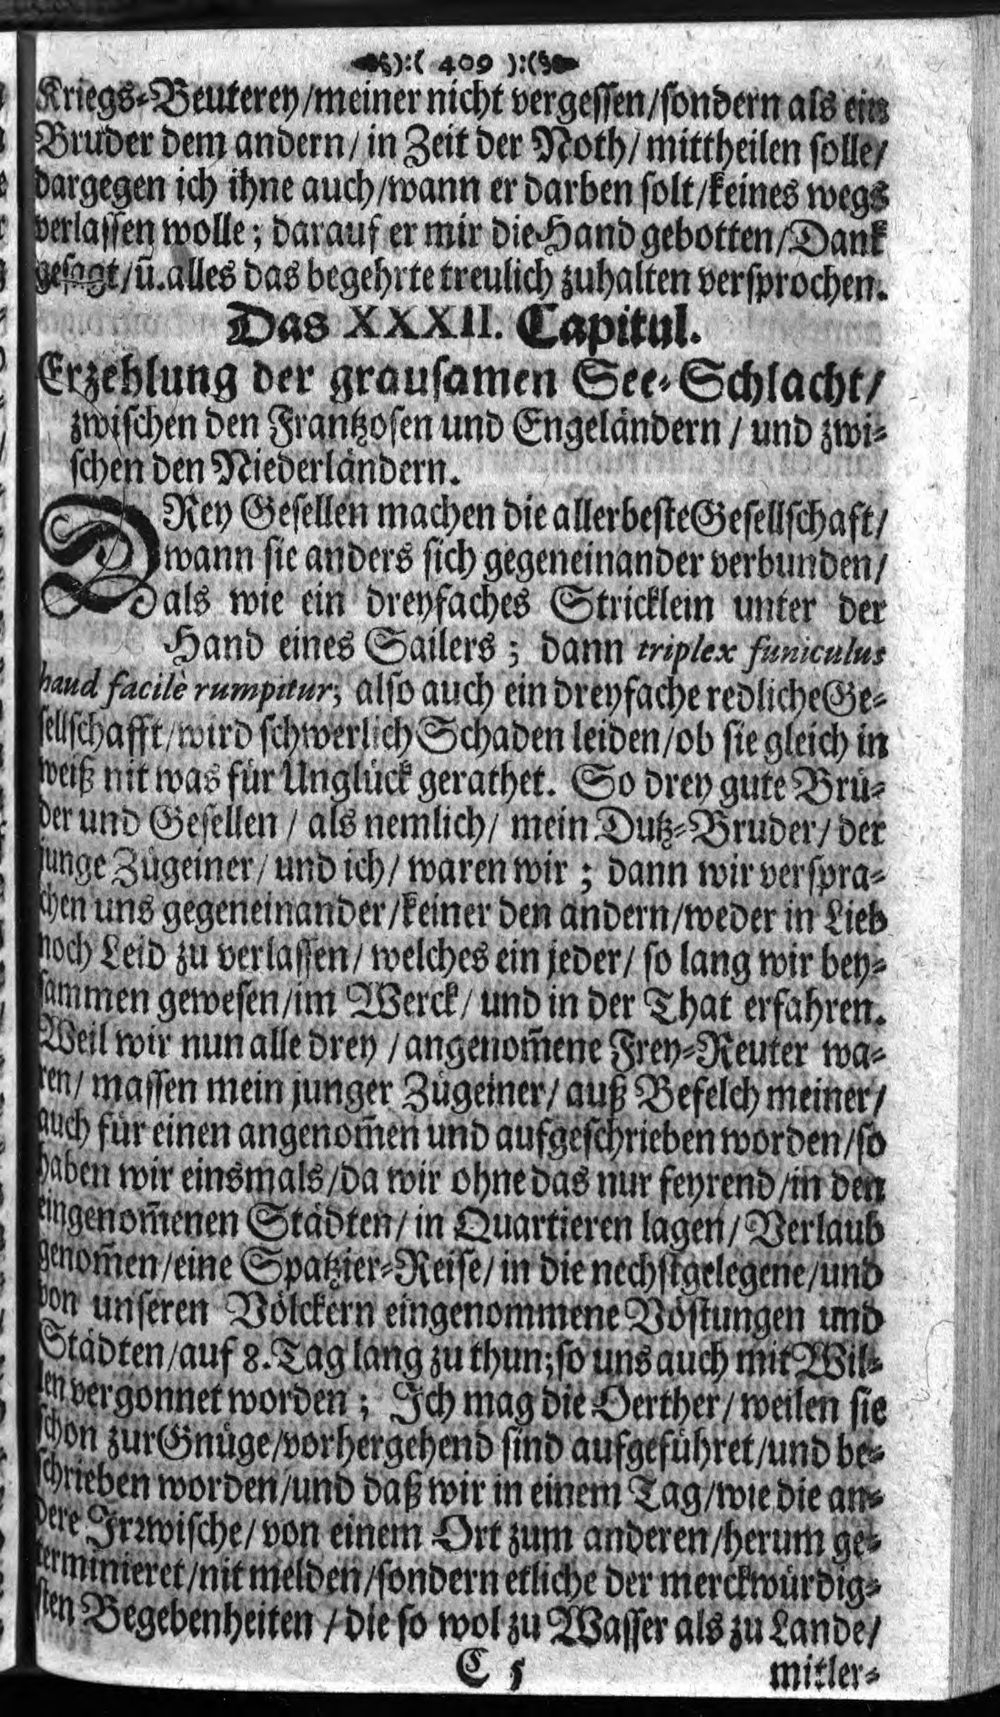 ):( 409 ):(
Kriegs-Beuterey/meiner nicht vergessen/sondern als ein
Bruder dem andern/ in Zeit der Noth/ mittheilen solle/
dargegen ich ihne auch/wann er darben solt/keines wegs
verlassen wolle; darauf er mir die Hand gebotten/Dank
gesagt/uñ.alles das begehrte treulich zuhalten versprochen.
Das XXXII. Capitul.
Erzehlung der grausamen See-Schlacht/
zwischen den Frantzosen und Engeländern / und zwi-
schen den Niederländern.
DRey Gesellen machen die allerbeste Gesellschaft/
wann sie anders sich gegeneinander verbunden/
als wie ein dreyfaches Stricklein unter der
Hand eines Sailers; dann triplex funiculus
haud facilè rumpitur; also auch ein dreyfache redliche Ge-
sellschafft/wird schwerlich Schaden leiden/ob sie gleich in
weiß nit was für Unglück gerathet. So drey gute Brü-
der und Gesellen / als nemlich/ mein Dutz-Bruder/ der
junge Zügeiner/ und ich/ waren wir ; dann wir verspra-
chen uns gegeneinander/keiner den andern/weder in Lieb
noch Leid zu verlassen/ welches ein jeder/ so lang wir bey-
sammen gewesen/im Werck/ und in der That erfahren.
Weil wir nun alle drey / angenom̃ene Frey-Reuter wa-
ren/ massen mein junger Zügeiner/ auß Befelch meiner/
auch für einen angenom̃en und aufgeschrieben worden/so
haben wir einsmals/da wir ohne das nur feyrend/in den
eingenom̃enen Städten/ in Quartieren lagen/ Verlaub
genom̃en/eine Spatzier-Reise/ in die nechstgelegene/und
von unseren Völckern eingenommene Vöstungen und
Städten/auf 8. Tag lang zu thun;so uns auch mit Wil-
len vergonnet worden ; Ich mag die Oerther/ weilen sie
schon zur Gnüge/vorhergehend sind aufgeführet/und be-
schrieben worden/und daß wir in einem Tag/wie die an-
dere Irꝛwische/ von einem Ort zum anderen/herum ge-
terminieret/nit melden/sondern etliche der merckwürdig-
sten Begebenheiten / die so wol zu Wasser als zu Lande/
C 5 mitler-